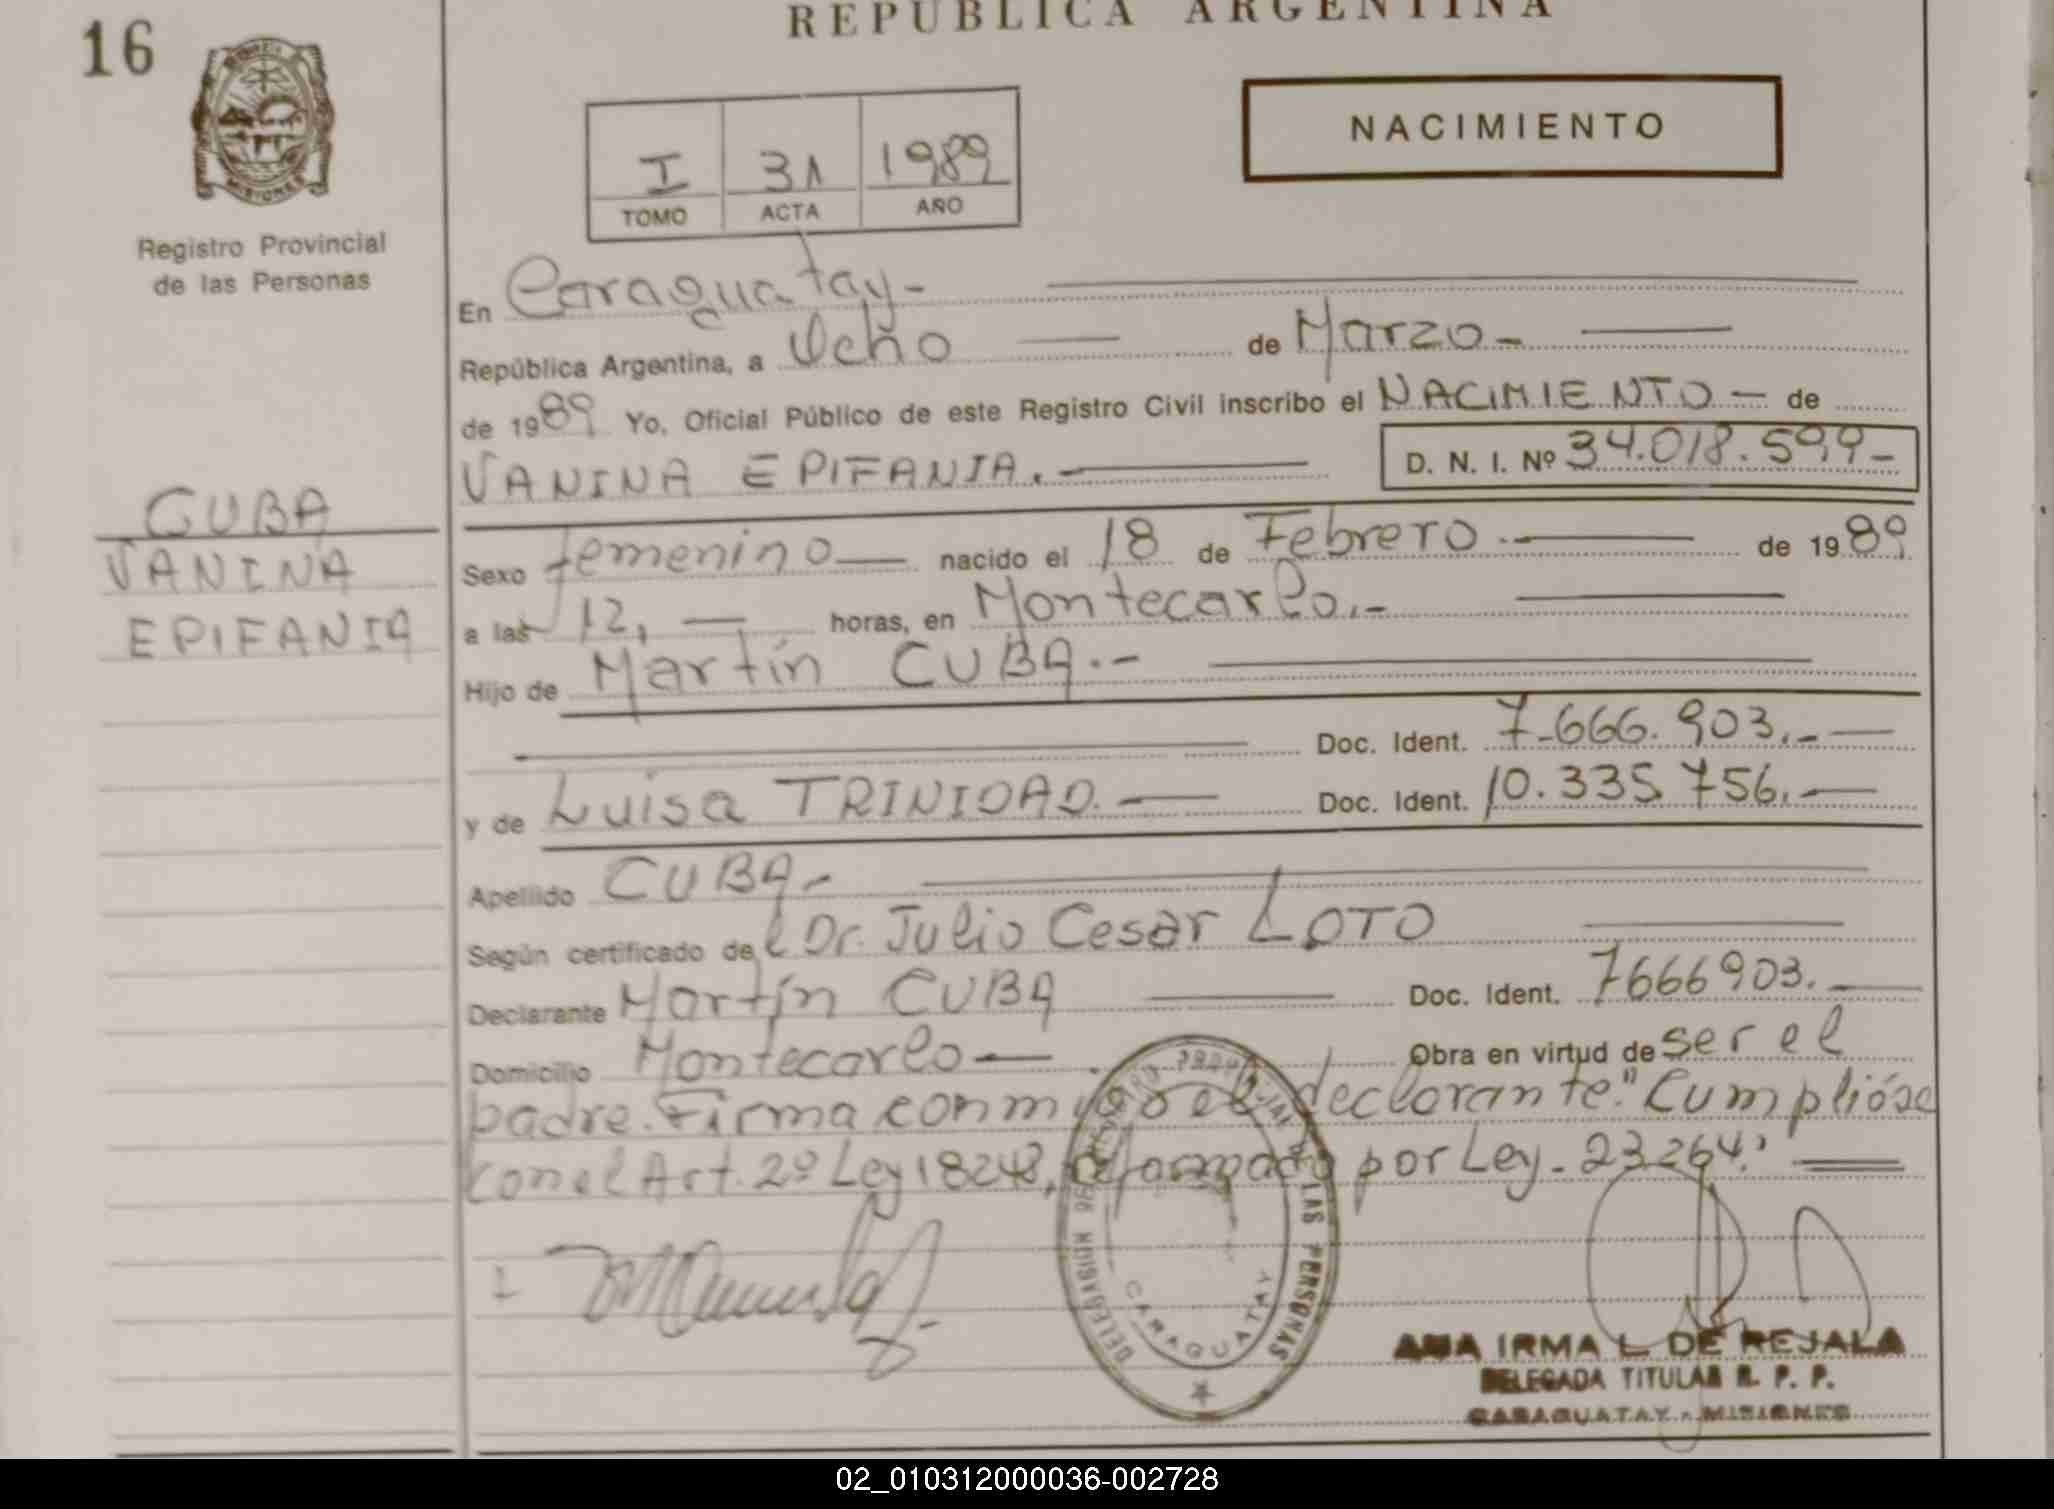 REPUBLICA ARGENTINA
16
MISIONES
Registro Provincial
de las Personas
I 31 1989
TOMO ACTA AÑO
NACIMIENTO
En Caraguatay-
República Argentina, a Ocho de Marzo-
de 1989 Yo, Oficial Público de este Registro Civil inscribo el NACIMIENTO - de
VANINA EPIFANIA.- D. N. I. Nº 34.018.599-
CUBA
VANINA
EPIFANIA
Sexo femenino nacido el 18 de Febrero.- de 1989
a las 12, horas, en Montecarlo.-
Hijo de Martín CUBA.-
Doc. Ident. 7.666.903.-
y de Luisa TRINIDAD. Doc. Ident. 10.335.756.-
Apellido CUBA-
Según certificado del Dr. Julio Cesar LOTO
Declarante Martín CUBA Doc. Ident. 7666903.
Domicilio Montecarlo Obra en virtud de ser el
padre. Firma conmigo el declarante." Cumplióse
con el Art. 2º Ley 18248, reformado por Ley-23264."
DELEGACION LAS PERSONAS
CARAGUATAY
ANA IRMA L DE REJALA
DELEGADA TITULAR R. P. P.
CARAGUATAY - MISIONES
02_010312000036-002728